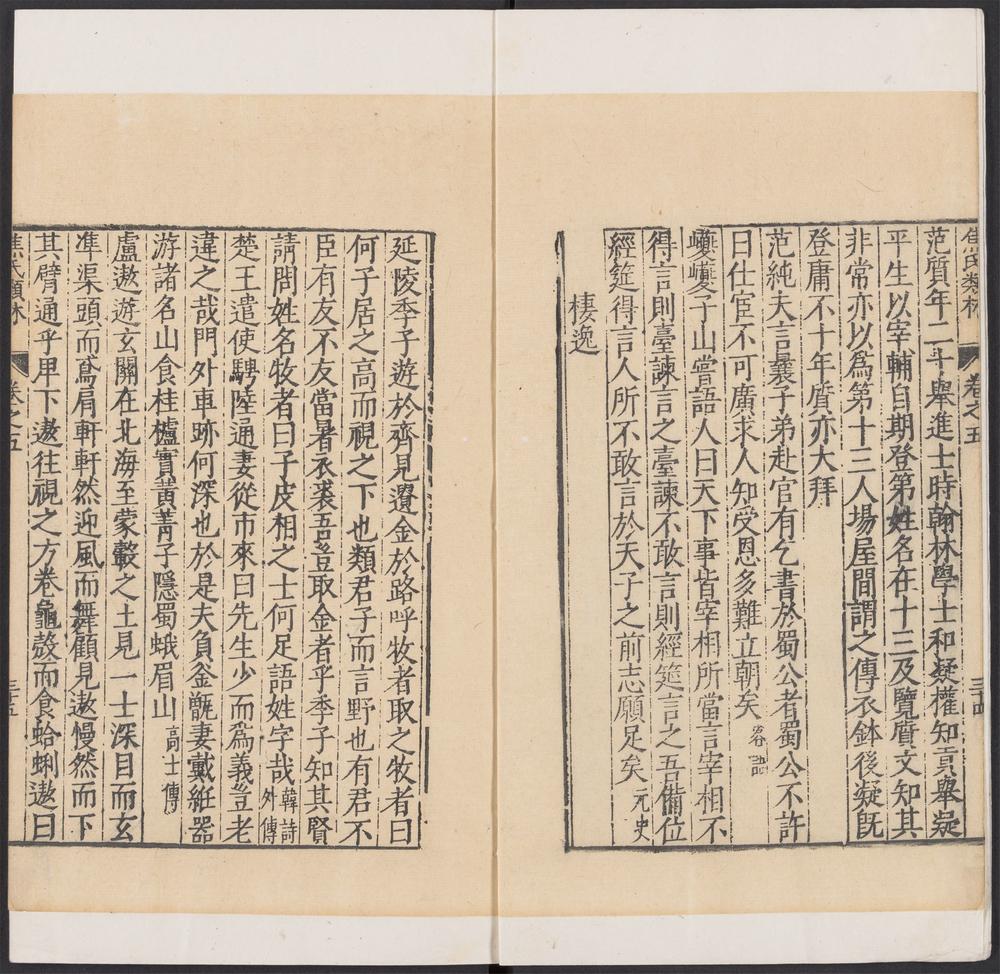 焦氏類林 卷之五 三十四
范質年二十舉進士時翰林學士和凝權知貢舉凝
平生以宰輔自期登第姓名在十三及覽質文知其
非常亦以爲第十三人場屋間謂之傳衣鉢後凝旣
登庸不十年質亦大拜
范純夫言曩子弟赴官有乞書於蜀公者蜀公不許
曰仕宦不可廣求人知受恩多難立朝矣 客語
巙巙子山嘗語人曰天下事皆宰相所當言宰相不
得言則臺諫言之臺諫不敢言則經筵言之吾備位
經筵得言人所不敢言於天子之前志願足矣 元史
棲逸
延陵季子遊於齊見遺金於路呼牧者取之牧者曰
何子居之高而視之下也類君子而言野也有君不
臣有友不友當暑衣裘吾豈取金者乎季子知其賢
請問姓名牧者曰子皮相之士何足語姓字哉 韓詩外傳
楚王遣使騁陸通妻從市來曰先生少而爲義豈老
違之哉門外車跡何深也於是夫負釜甑妻戴紝器
游諸名山食桂櫨實黃菁子隱蜀蛾眉山 高士傳
盧遨遊玄闕在北海至蒙轂之土見一士深目而玄
準渠頭而鳶肩軒軒然迎風而舞顧見遨慢然而下
其臂遁乎甲下遨往視之方卷龜殼而食蛤蜊遨曰
焦氏類林 卷之五 三十五